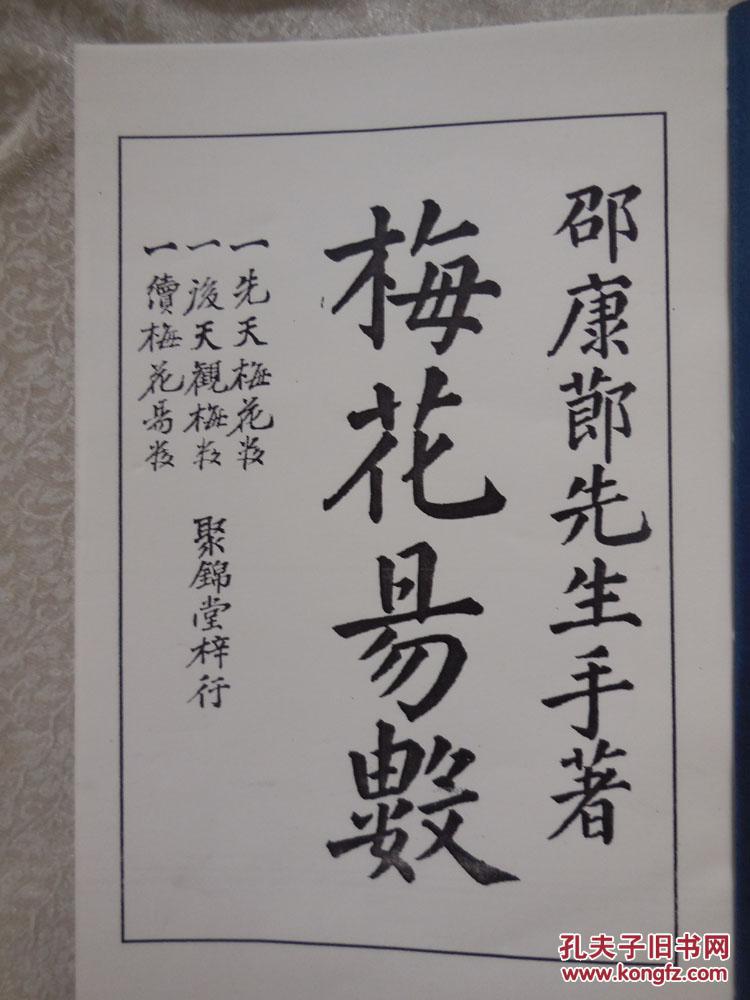 邵康莭先生手著
梅花昜數
一先天梅花数
一後天觀梅数
一續梅花昜数
聚錦堂梓行
孔夫子旧书网
www.kongfz.com